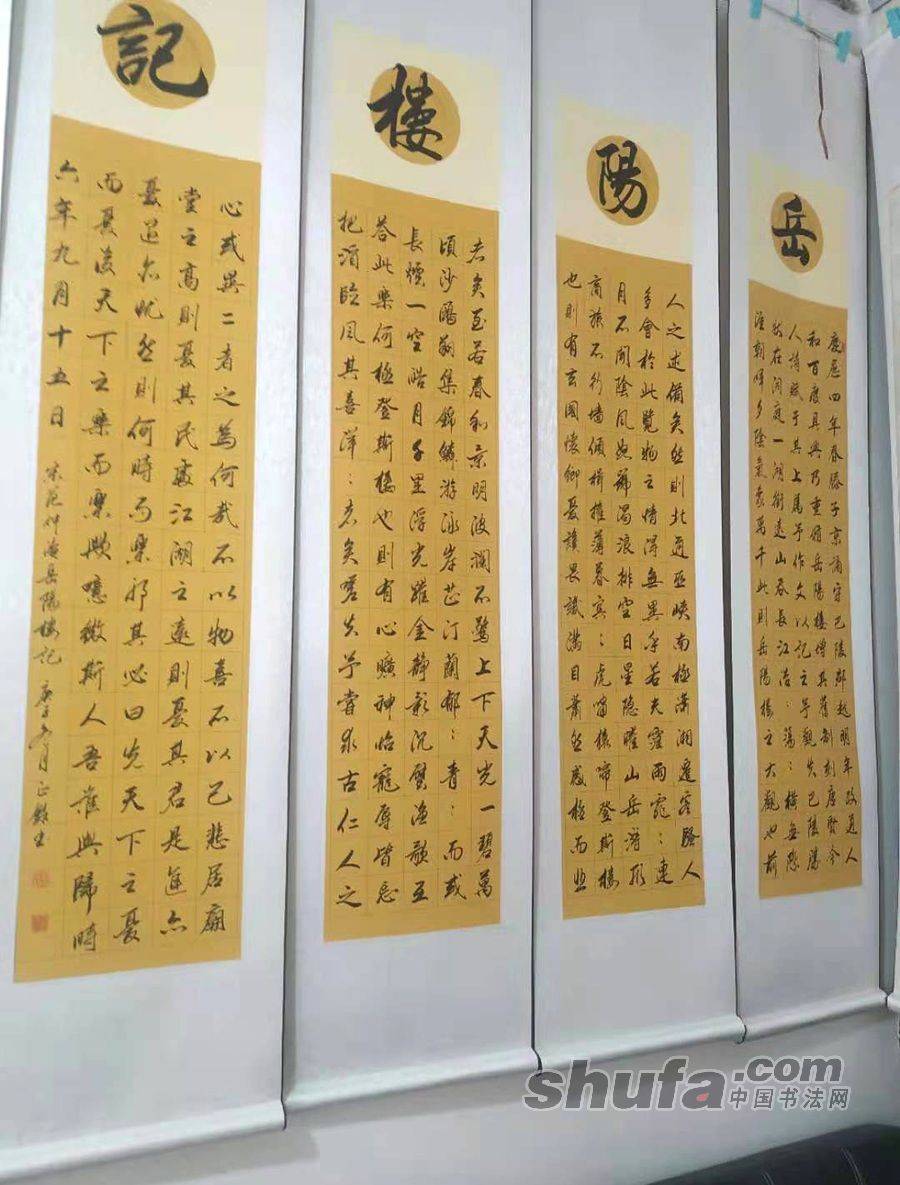 岳
慶曆四年春滕子京謫守巴陵郡越明年政通人
和百廢具興乃重脩岳陽樓增其舊制刻唐賢今
人詩賦于其上屬予作文以記之予觀夫巴陵勝
狀在洞庭一湖銜遠山吞長江浩:蕩:橫無際
涯朝暉夕陰氣象萬千此則岳陽樓之大觀也前
陽
人之述備矣然則北通巫峽南極瀟湘遷客騷人
多會於此覽物之情得無異乎若夫霪雨霏:連
月不開陰風怒號濁浪排空日星隱曜山岳潛形
商旅不行檣傾楫摧薄暮冥:虎嘯猿啼登斯樓
也則有去國懷鄉憂讒畏譏滿目蕭然感極而悲
樓
者矣至若春和景明波瀾不驚上下天光一碧萬
頃沙鷗翔集錦鱗游泳岸芷汀蘭郁:青:而或
長煙一空皓月千里浮光躍金靜影沉璧漁歌互
答此樂何極登斯樓也則有心曠神怡寵辱皆忘
把酒臨風其喜洋:者矣嗟夫予嘗求古仁人之
記
心或異二者之為何哉不以物喜不以己悲居廟
堂之高則憂其民處江湖之遠則憂其君是進亦
憂退亦忧然則何時而樂耶其必曰先天下之憂
而憂後天下之樂而樂歟噫微斯人吾誰與歸時
六年九月十五日 宋范仲淹岳陽樓記 庚子冬月
shufa.com
中国书法网